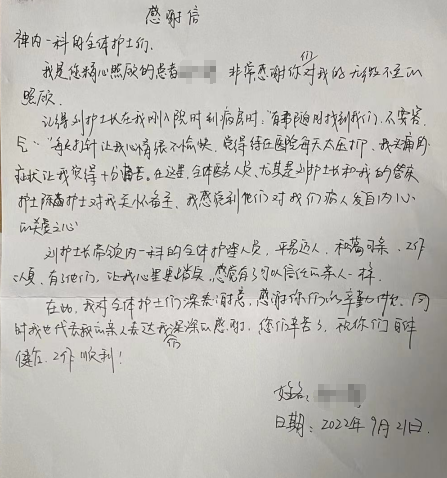 感谢信
神内一科的全体护士们:
我是您精心照顾的患者 非常感谢你们对我的无微不至的
照顾。
记得刘护士长在我刚入院时到病房时,"有事随时找到我们,不要客
气"。每天打针让我心情很不愉快,觉得待在医院每天太压抑,我头痛的
症状让我觉得十分痛苦。在这里,全体医务人员、尤其是刘护士长和我的管床
护士 护士对我关怀备至,我感觉到他们对我们病人发自内心
的关爱之心
刘护士长带领内一科的全体护理人员,平易近人,和蔼可亲,工作
认真,有了他们,让我心里更踏实,感觉有了可以信任的亲人一样。
在此,我对全体护士们深表谢意,感谢你们的辛勤付出,同
时我也代表我的亲人表达我们深深的感谢,您们辛苦了,祝你们身体
健康、工作顺利!
姓名:
日期:2022年9月21日.